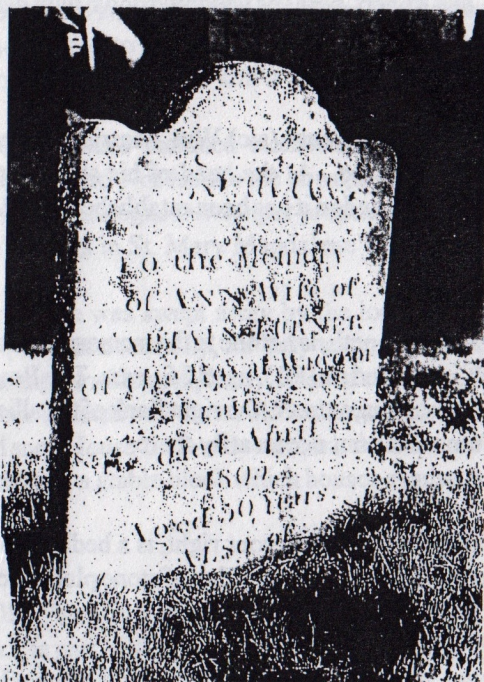 To the Memory
of ANN Wife of
CAPTAIN TURNER
of the Royal Waggon
Train
died April
Aged 50 Years
ALSO of